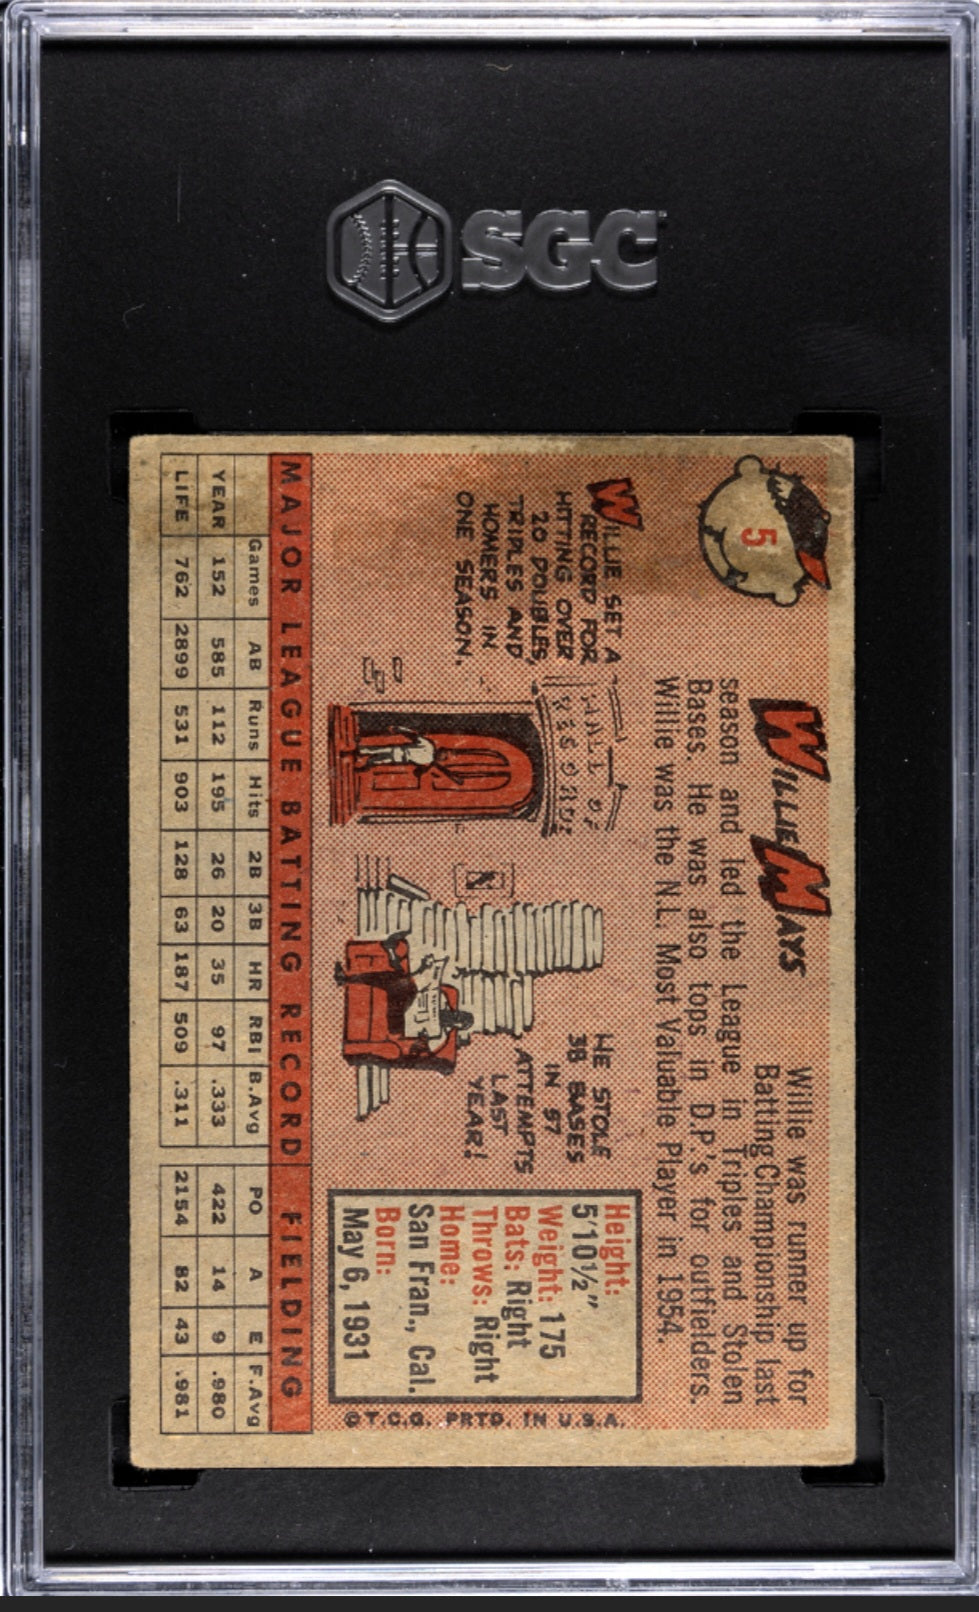 SGC
5
WILLIE MAYS
Willie was runner up for
Batting Championship last
season and led the League in Triples and Stolen
Bases. He was also tops in D.P.'s for outfielders.
Willie was the N.L. Most Valuable Player in 1954.
WILLIE SET A
RECORD FOR
HITTING OVER
20 DOUBLES,
TRIPLES AND
HOMERS IN
ONE SEASON.
HALL OF
RECORDS
HE STOLE
38 BASES
IN 57
ATTEMPTS
LAST
YEAR!
Height:
5'10½"
Weight: 175
Bats: Right
Throws: Right
Home:
San Fran., Cal.
Born:
May 6, 1931
©T.C.G. PRTD. IN U.S.A.
MAJOR LEAGUE BATTING RECORD FIELDING
Games AB Runs Hits 2B 3B HR RBI B.Avg PO A E F.Avg
YEAR 152 585 112 195 26 20 35 97 .333 422 14 9 .980
LIFE 762 2899 531 903 128 63 187 509 .311 2154 82 43 .981